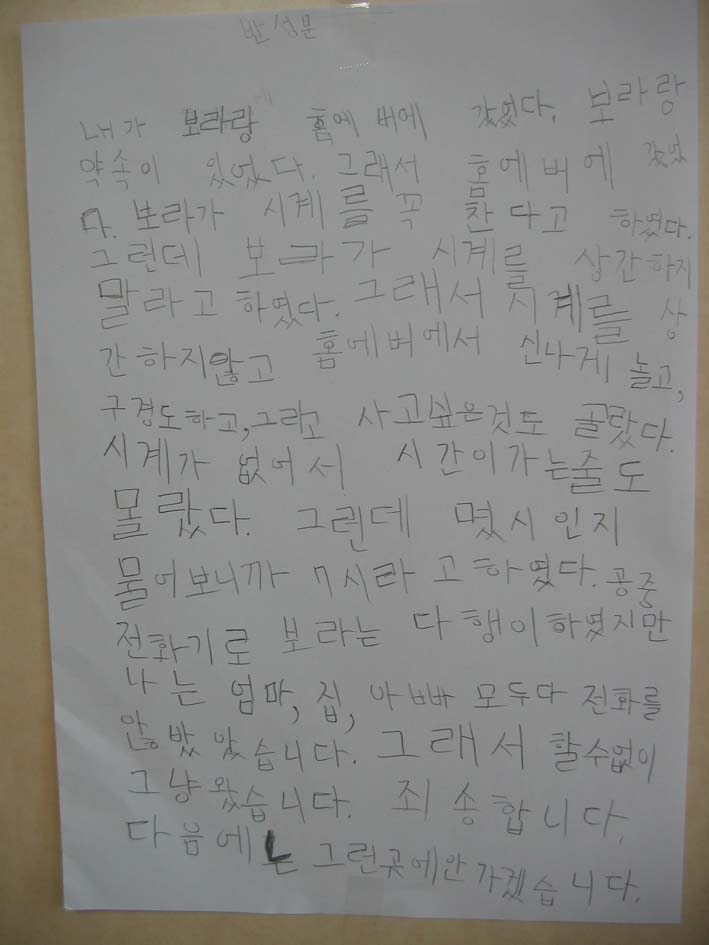 반성문
내가 보라랑 홈에버에 갔었다. 보라랑
약속이 있었다. 그래서 홈에버에 갔었
다. 보라가 시계를 꼭 찬다고 하였다.
그런데 보라가 시계를 상간하지
말라고 하였다. 그래서 시계를 상
간하지않고 홈에버에서 신나게 놀고,
구경도하고,그리고 사고싶은것도 골랐다.
시계가 없어서 시간이가는줄도
몰랐다. 그런데 몇시인지
물어보니까 7시라고하였다. 공중
전화기로 보라는 다행이하였지만
나는 엄마, 집, 아빠 모두다 전화를
않밨았습니다. 그래서 할수없이
그냥왔습니다. 죄송합니다.
다음에는 그런곳에안가겠습니다.